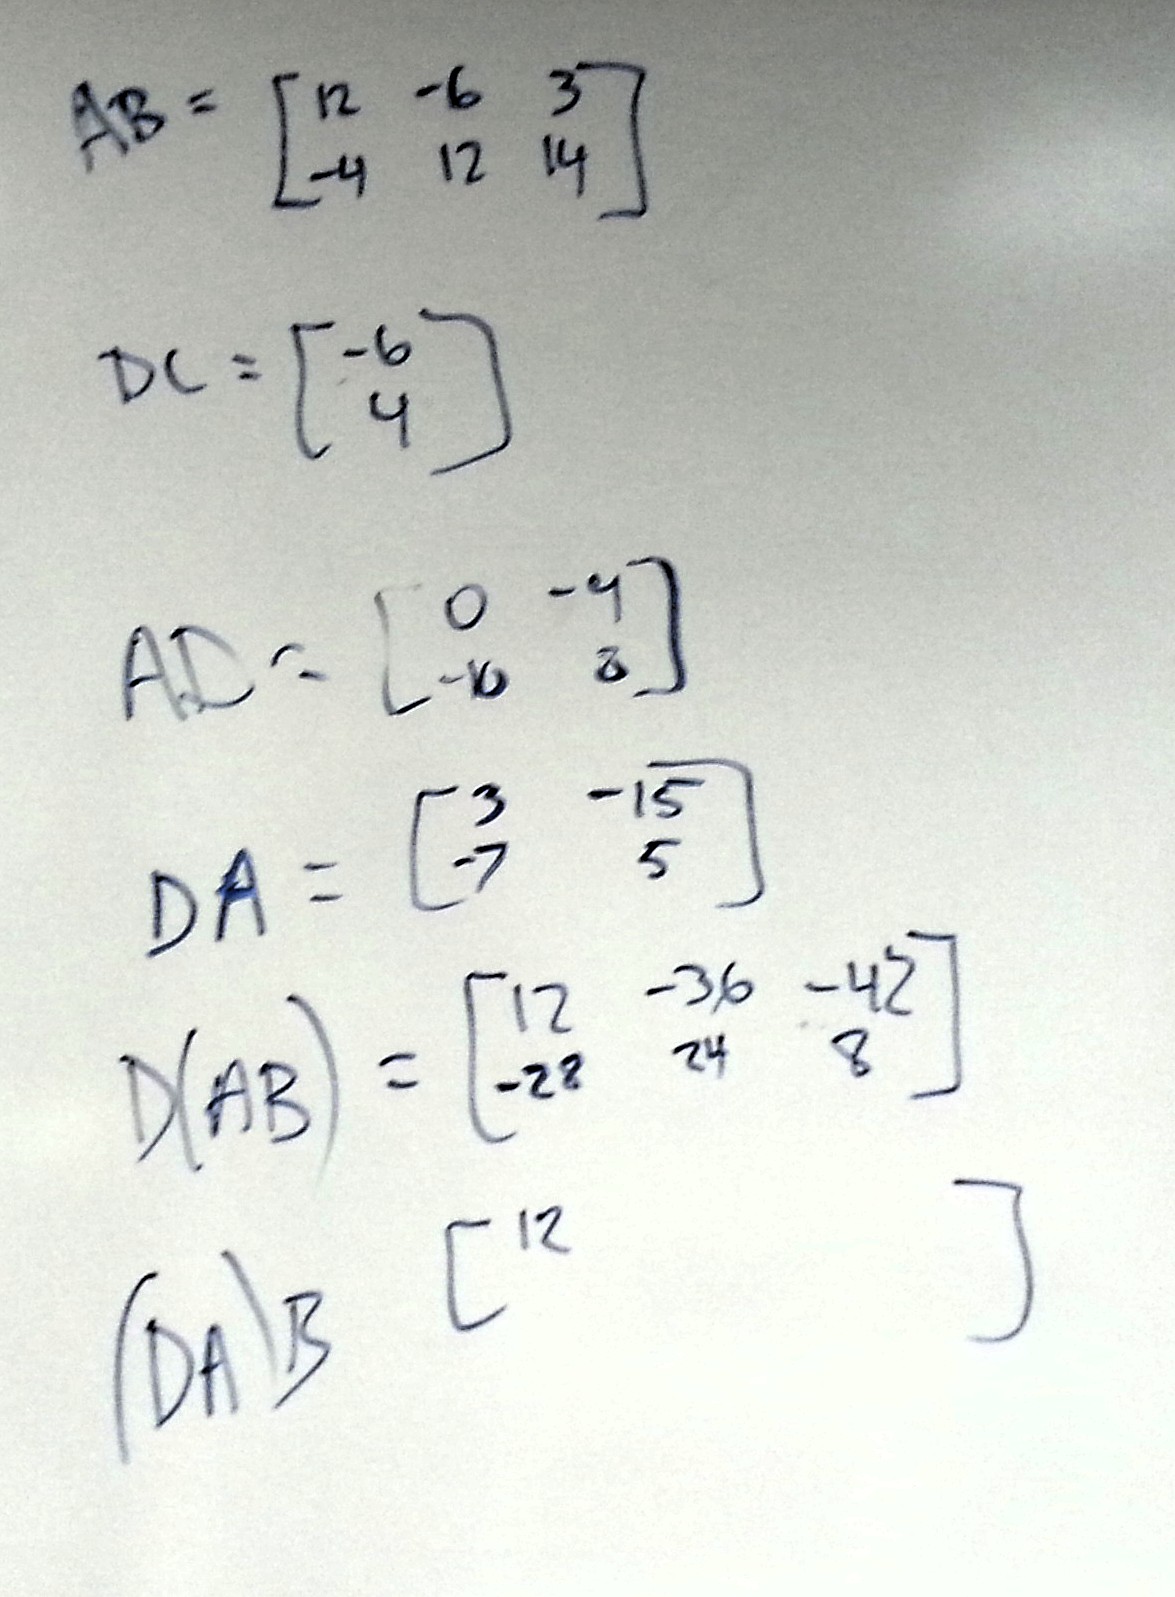 AB = [ 12 -6 3
-4 12 14 ]
DC = [ -6
4 ]
AD = [ 0 -4
-16 8 ]
DA = [ 3 -15
-7 5 ]
D(AB) = [ 12 -36 -42
-28 24 8 ]
(DA)B [ 12 ]